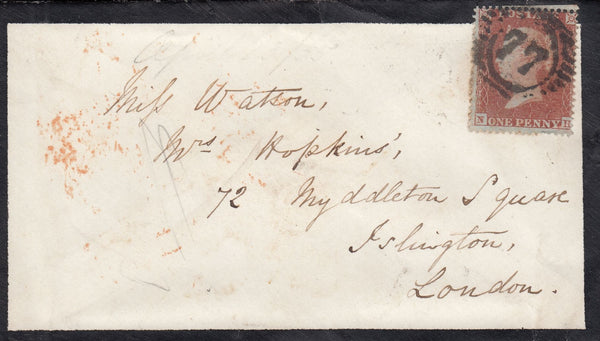 77
ONE PENNY
Miss Watson,
Mrs Hopkins',
72 Myddleton Square
Islington,
London.